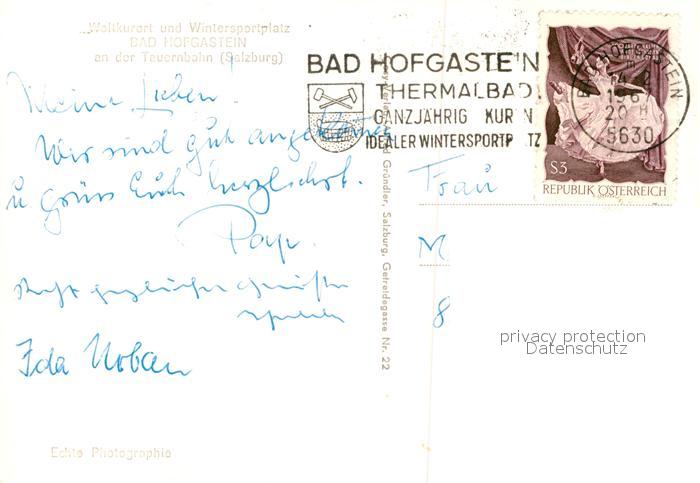 Weltkurort und Wintersportplatz
BAD HOFGASTEIN
an der Tauernbahn (Salzburg)
Meine Lieben!
Wir sind gut angekommen
u. grüss Euch herzlichst.
Papa.
Ida Urban
Echte Photographie
Gründler, Salzburg, Getreidegasse Nr. 22
BAD HOFGASTEIN
THERMALBAD
GANZJÄHRIG KUR N
IDEALER WINTERSPORTP TZ
20
5630
S3
REPUBLIK ÖSTERREICH
Frau
M
8
privacy protection
Datenschutz